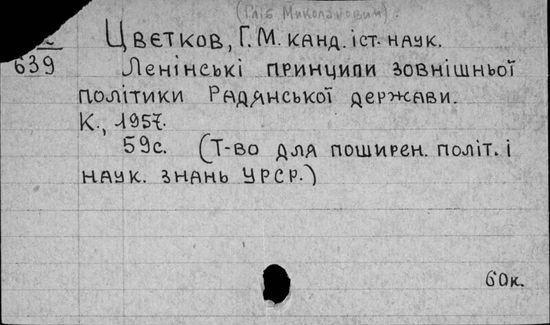 (Гліб Миколайович).
Цвєтков, Г.М. канд. іст. наук.
639
Ленінські принципи зовнішньої
політики Радянської держави.
К., 1957.
59с. (Т-во для поширен. політ. і
наук. знань УРСР.)
60к.